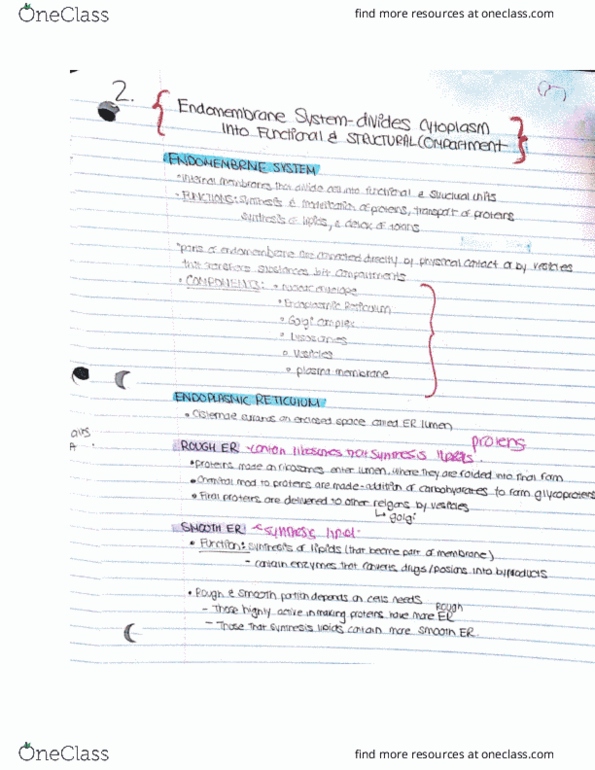 OneClass
find more resources at oneclass.com
2.
Endomembrane System-divides cytoplasm
into Functional & STRUCTURAL COmpartment
ENDOMEMBRNE SYSTEM
• internal membranes that divide cell into functional & structural units
- FUNCTIONS: synthesis & of proteins, transport of proteins
synthesis of lipids, & detox of toxins
*parts of endomembrane are connected directly by physical contact or by vesicles
that transfers substances btt compartments
• COMPONENTS: • nuclear envelope
• Endoplasmic Reticulum
• Golgi complex
• Lysosomes
• Vesicles
• plasma membrane
ENDOPLASMIC RETICULUM
• Cisternae surrands an enclosed space called ER lumen
proteins
ROUGH ER: contain ribosomes that synthesis
• Proteins made on ribosomes enter lumen, where they are folded into final form
• Chemical mod to proteins are made-addition of carbohydrates to form glycoproteins
• Final proteins are delivered to other reigons by vesicles
↳ golgi
SMOOTH ER: synthesis lipid
• Function: synthesis of lipids (that become part of membrane)
- contain enzymes that converts drugs/posions into byproducts
• Rough & smooth portion depends on cells needs
Rough
- Those highly active in making proteins have more ER
- Those that synthesis lipids contain more smooth ER
OneClass
find more resources at oneclass.com